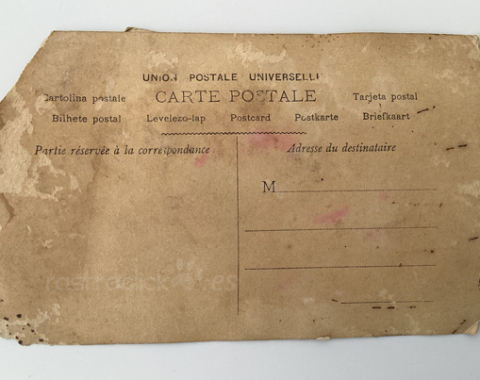 UNION POSTALE UNIVERSELLE
Cartolina postale CARTE POSTALE Tarjeta postal
Bilhete postal Levelezo-lap Postcard Postkarte Briefkaart
Partie réservée à la correspondance Adresse du destinataire
M